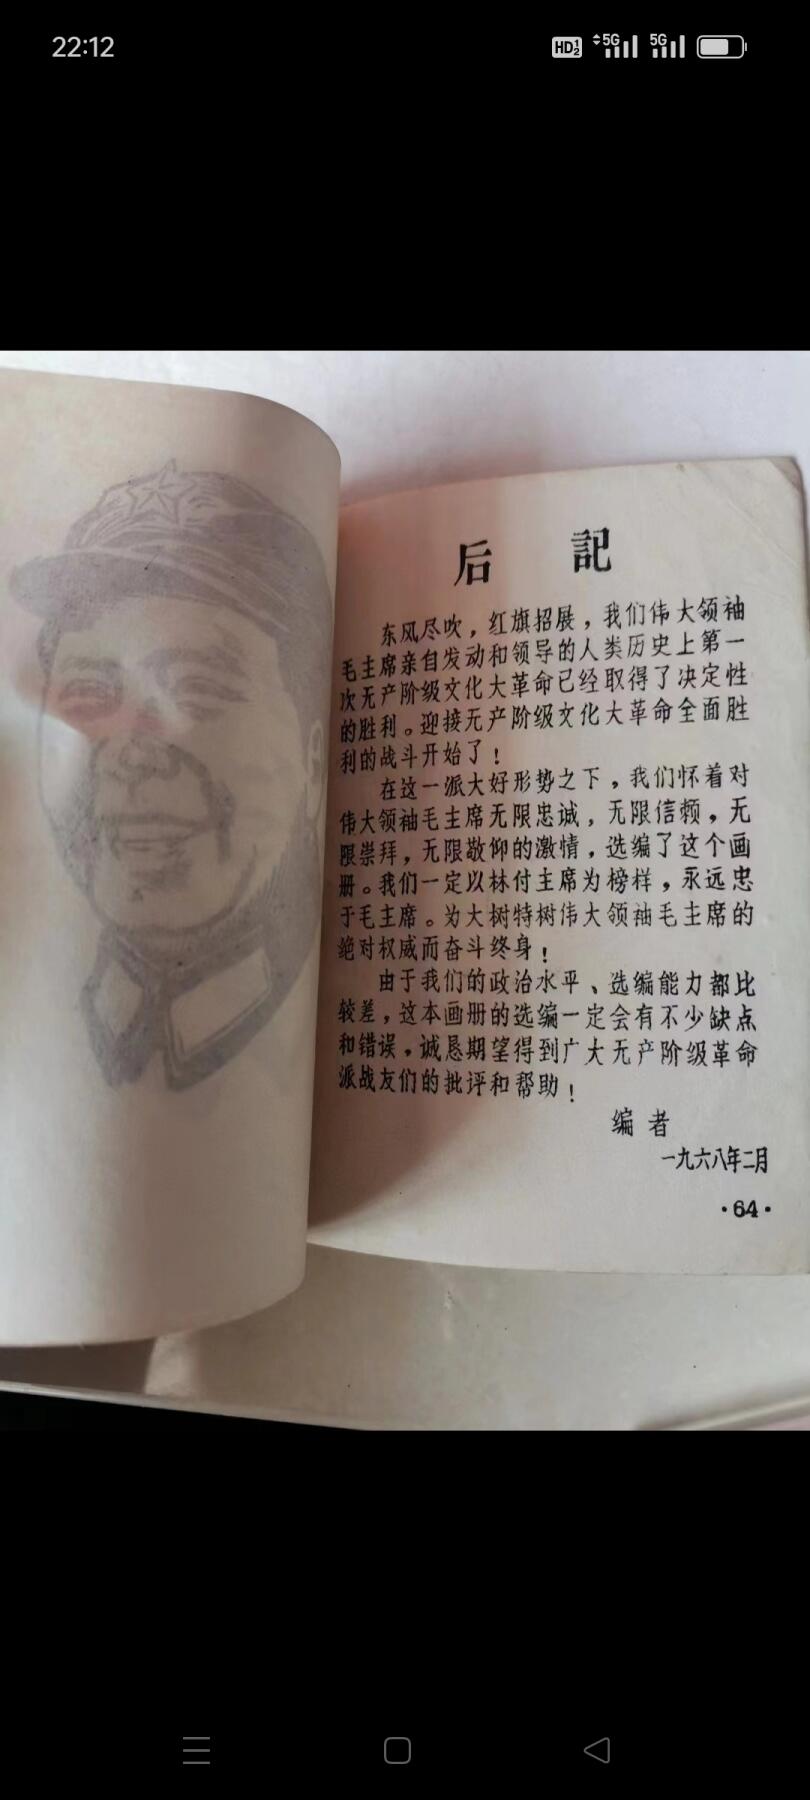 22:12
HD 1 2
5G
5G
后 記
东风尽吹，红旗招展，我们伟大领袖
毛主席亲自发动和领导的人类历史上第一
次无产阶级文化大革命已经取得了决定性
的胜利。迎接无产阶级文化大革命全面胜
利的战斗开始了！
在这一派大好形势之下，我们怀着对
伟大领袖毛主席无限忠诚，无限信赖，无
限崇拜，无限敬仰的激情，选编了这个画
册。我们一定以林付主席为榜样，永远忠
于毛主席。为大树特树伟大领袖毛主席的
绝对权威而奋斗终身！
由于我们的政治水平、选编能力都比
较差，这本画册的选编一定会有不少缺点
和错误，诚恳期望得到广大无产阶级革命
派战友们的批评和帮助！
编 者
一九六八年二月
·64·